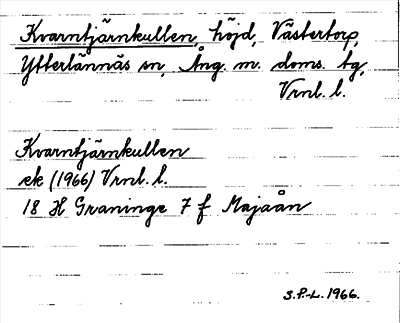 Kvarntjärnkullen, höjd, Västertorp,
Ytterlännäs sn, Ång. m. doms. tg,
Vrnl. l.
Kvarntjärnkullen
ek (1966) Vrnl. l.
18 H Graninge 7 f Majaån
S.P.-L. 1966.